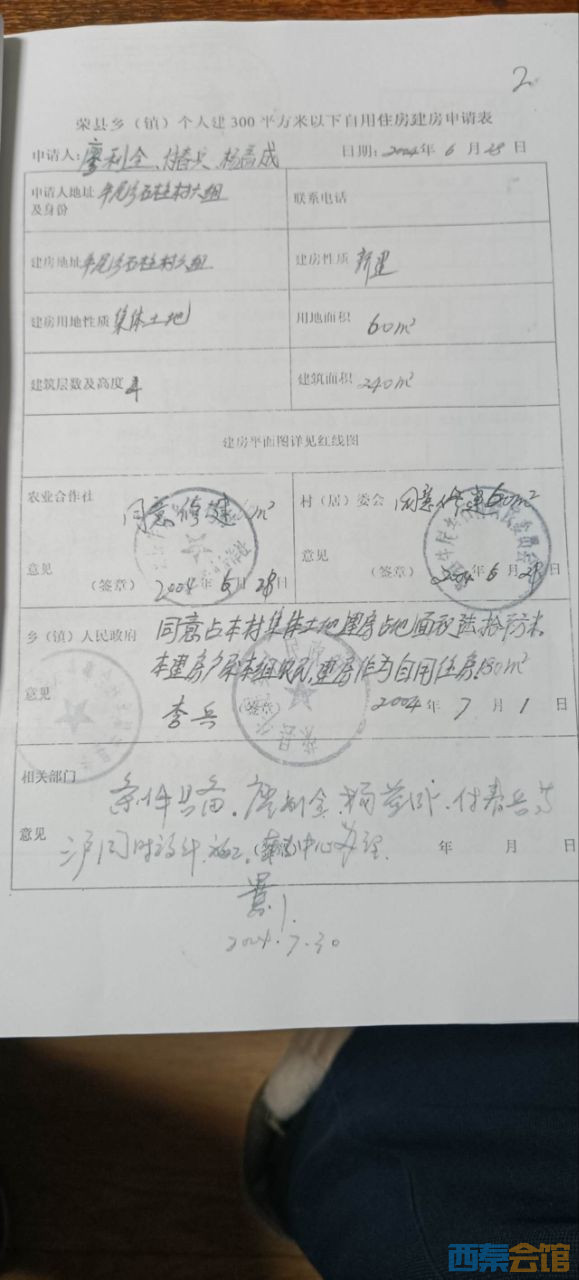 2
荣县乡（镇）个人建300平方米以下自用住房建房申请表
申请人：廖利全、付春兵、杨 成 日期：2004年6月28日
申请人地址及身份 石柱村六组 联系电话
建房地址 石柱村六组 建房性质 新建
建房用地性质 集体土地 用地面积 60m²
建筑层数及高度 4 建筑面积 240m²
建房平面图详见红线图
农业合作社 同意修建 m² 村（居）委会 同意修建60m²
意见 意见
（签章） 2004年6月28日 （签章） 2004年6月28日
乡（镇）人民政府 同意占本村集体土地建房占地面积陆拾平方米.
本建房户系本组农民，建房作为自用住房150m²
意见 李兵 （签章） 2004年7月1日
相关部门 条件具备。廖利全、杨 、付春兵等
意见 三户同时设计、施工。 中心办理. 年 月 日
2004.7.30
西秦会馆